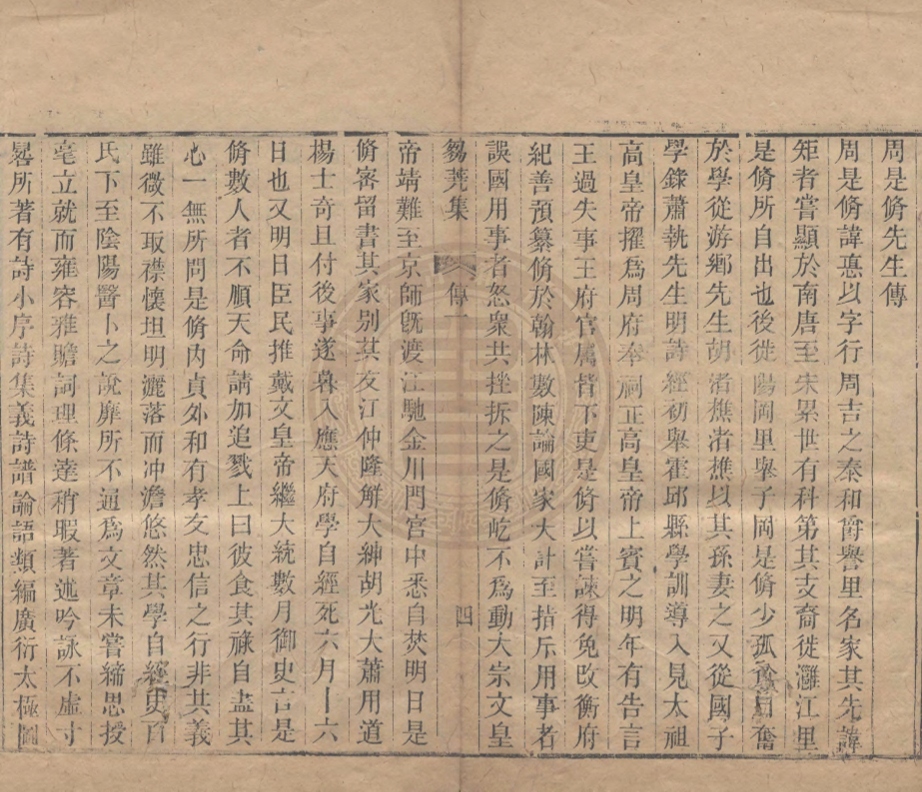 周是脩先生傳
周是脩諱悳以字行周吉之泰和爵譽里名家其先諱
矩者嘗顯於南唐至宋累世有科第其支裔徙灘江里
是脩所自出也後徙陽岡里舉子岡是脩少孤貧自奮
於學從游鄉先生胡渚樵渚樵以其孫妻之又從國子
學錄蕭執先生明詩經初舉霍邱縣學訓導入見太祖
高皇帝擢爲周府奉祠正高皇帝上賓之明年有告言
王過失事王府官属皆下吏是脩以嘗諫得免改衡府
紀善預纂脩於翰林數陳論國家大計至指斥用事者
誤國用事者怒衆共挫折之是脩屹不爲動太宗文皇
芻蕘集 傳一 四
帝靖難至京師旣渡江馳金川門宮中悉自焚明日是
脩審留書其家别其友江仲隆解大紳胡光大蕭用道
楊士奇且付後事遂暮入應天府學自經死六月十六
日也又明日臣民推戴文皇帝繼大統數月御史言是
脩數人者不順天命請加追戮上曰彼食其祿自盡其
心一無所問是脩內貞外和有孝友忠信之行非其義
雖微不取襟懷坦明灑落而冲澹悠然其學自經史百
氏下至陰陽醫卜之說靡所不通爲文章未嘗締思授
毫立就而雍容雅贍詞理條達稍暇著述吟詠不虛寸
晷所著有詩小序詩集義詩譜論語類編廣衍太極圖